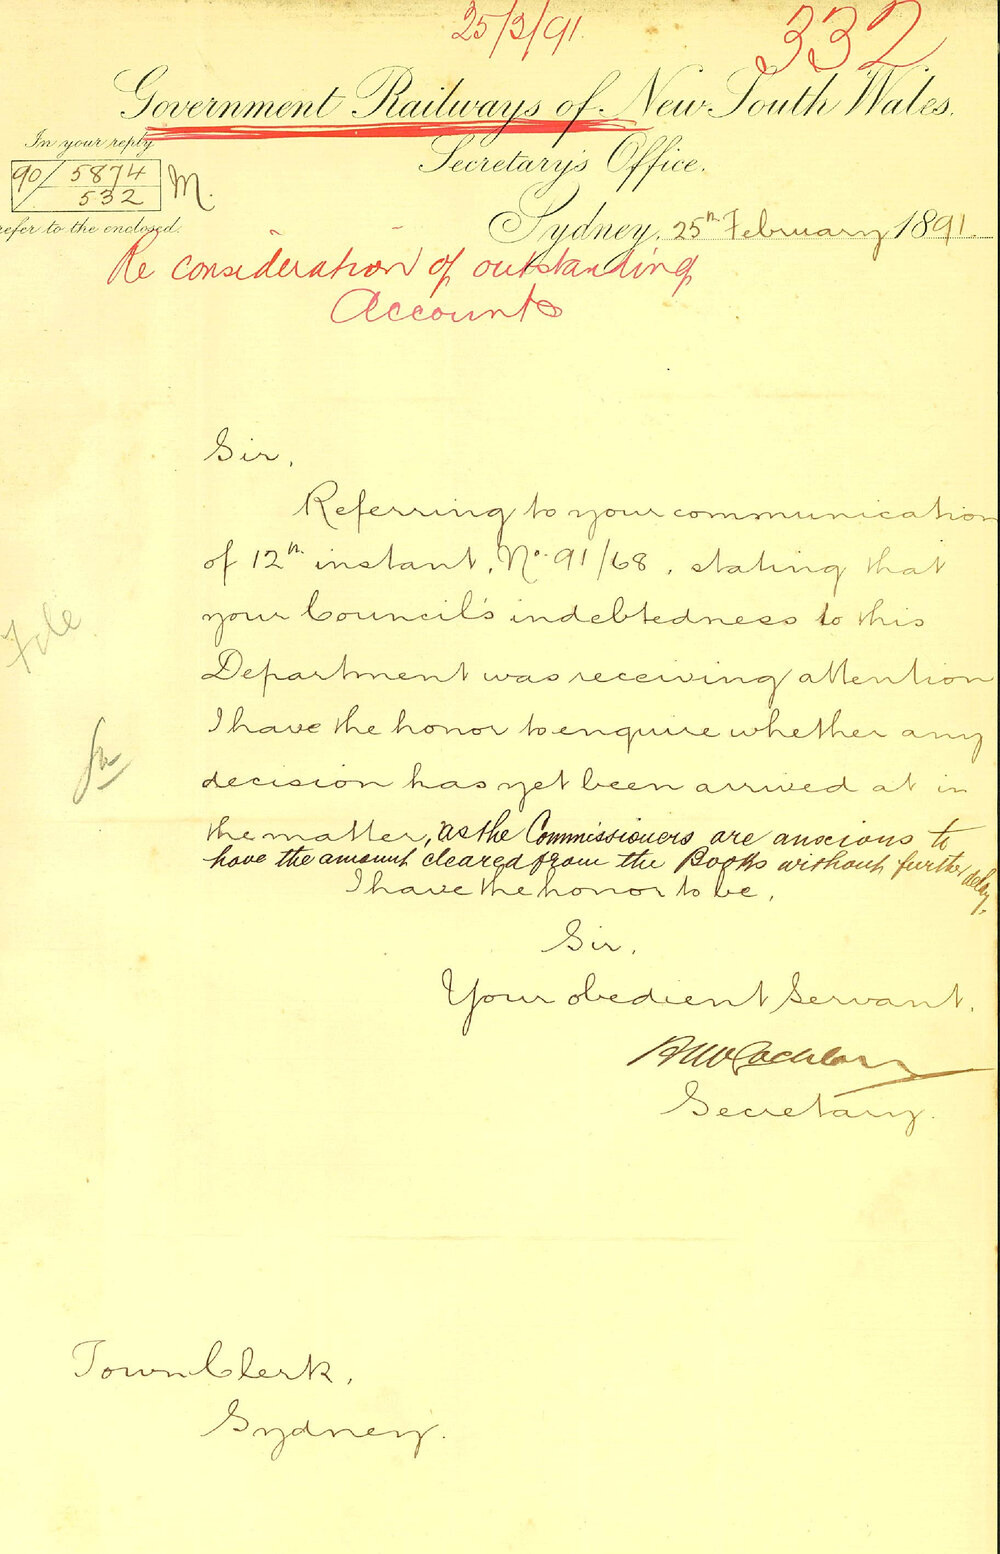 25/3/91.
332
Government Railways of New South Wales.
In your reply
Secretary's Office.
90/5874
532
M.
refer to the enclosed.
Sydney, 25th February 1891.
Re consideration of outstanding
Accounts
Sir,
Referring to your communication
of 12th instant, No. 91/68, stating that
your Council's indebtedness to this
Department was receiving attention
I have the honor to enquire whether any
decision has yet been arrived at in
the matter, as the Commissioners are anxious to
have the amount cleared from the Books without further delay.
File
I have the honor to be,
Sir,
Your obedient Servant,
Secretary.
Town Clerk,
Sydney.